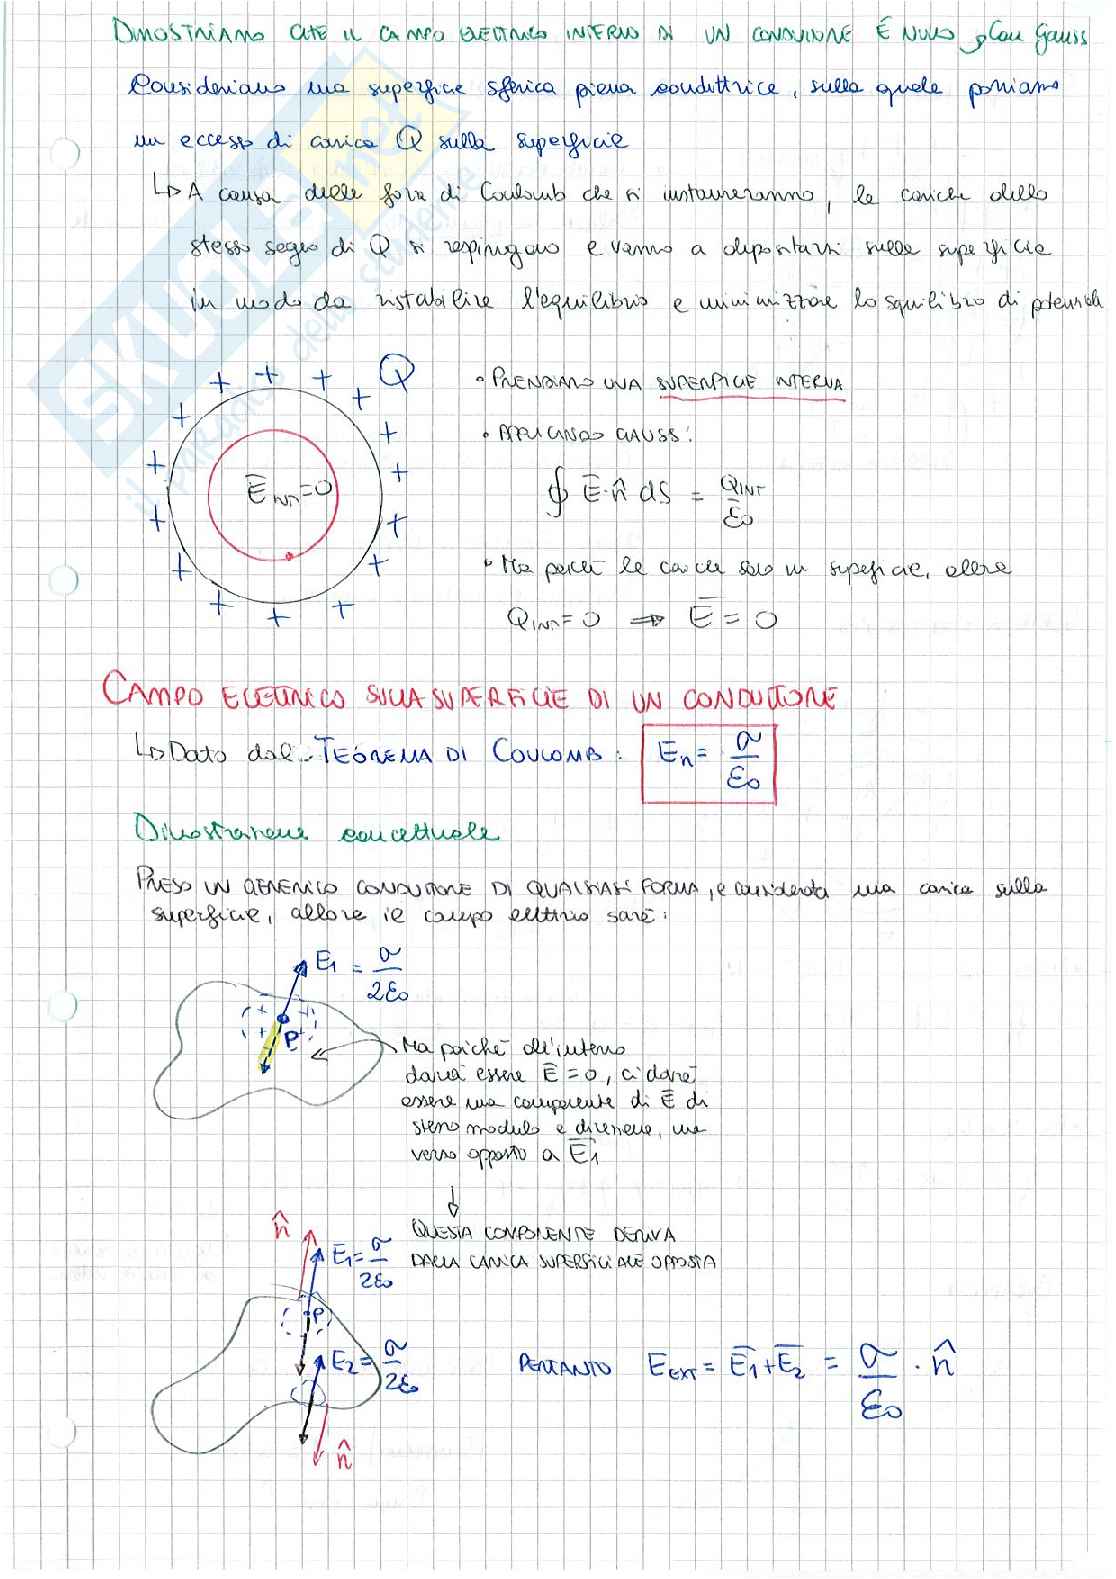 DIMOSTRIAMO CHE IL CAMPO ELETTRICO INTERNO DI UN CONDUTTORE È NULO, Con Gauss
Consideriamo una superficie sferica piena conduttrice, sulla quale poniamo
un eccesso di carica Q sulla superficie
↳ A causa delle forze di Coulomb che si instaureranno, le cariche dello
stesso segno di Q si respingono e vanno a depositarsi sulla superficie
in modo da ristabilire l'equilibrio e minimizzare lo squilibrio di potenziale
Q
• PRENDIAMO UNA SUPERFICIE INTERNA
• APPLICANDO GAUSS:
E̅ INT = 0
∮ E̅·n̂ dS = Q INT / ε0
• Ma poiché le cariche sono in superficie, allora
Q INT = 0 ⇒ E̅ = 0
CAMPO ELETTRICO SULLA SUPERFICIE DI UN CONDUTTORE
↳ Dato dal TEOREMA DI COULOMB: En = σ / ε0
Dimostrazione concettuale
PRESO UN GENERICO CONDUTTORE DI QUALSIASI FORMA, e considerata una carica sulla
superficie, allora il campo elettrico sarà:
E1 = σ / 2ε0
P
Ma poiché all'interno
dovrà essere E̅ = 0, ci dovrà
essere una componente di E̅ di
stesso modulo e direzione, ma
verso opposto a E̅1
QUESTA COMPONENTE DERIVA
DALLA CARICA SUPERFICIALE OPPOSTA
n̂
E1 = σ / 2ε0
P
E2 = σ / 2ε0
n̂
PERTANTO E EXT = E̅1 + E̅2 = σ / ε0 · n̂
SKUOLA.net
il paradiso dello studente